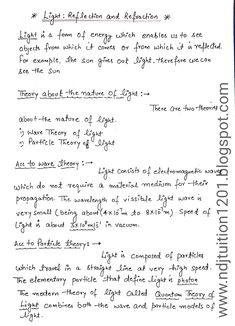 * Light: Reflection and Refraction *
Light is a form of energy which enables us to see
objects from which it comes or from which it is reflected.
For example, the sun gives out light. therefore we can
see the sun
Theory about the nature of light:→
There are two theories
about the nature of light.
i) Wave Theory of light
ii) Particle Theory of light
Acc to wave Theory:→
Light consists of electromagnetic wave
which do not require a material medium for their
propagation. The wavelength of vissible light wave is
very small (being about 4x10⁻⁷m to 8x10⁻⁷m). Speed of
light is about 3x10⁸m/s in vacuum.
Acc to Particle theory:→
Light is composed of particles
which travel in a straight line at very high speed.
The elementary particle that define light is photon
The modern theory of light Called Quantum Theory of
Light combines both the wave and particle models of
light.
www.ndjtuition1201.blogspot.com